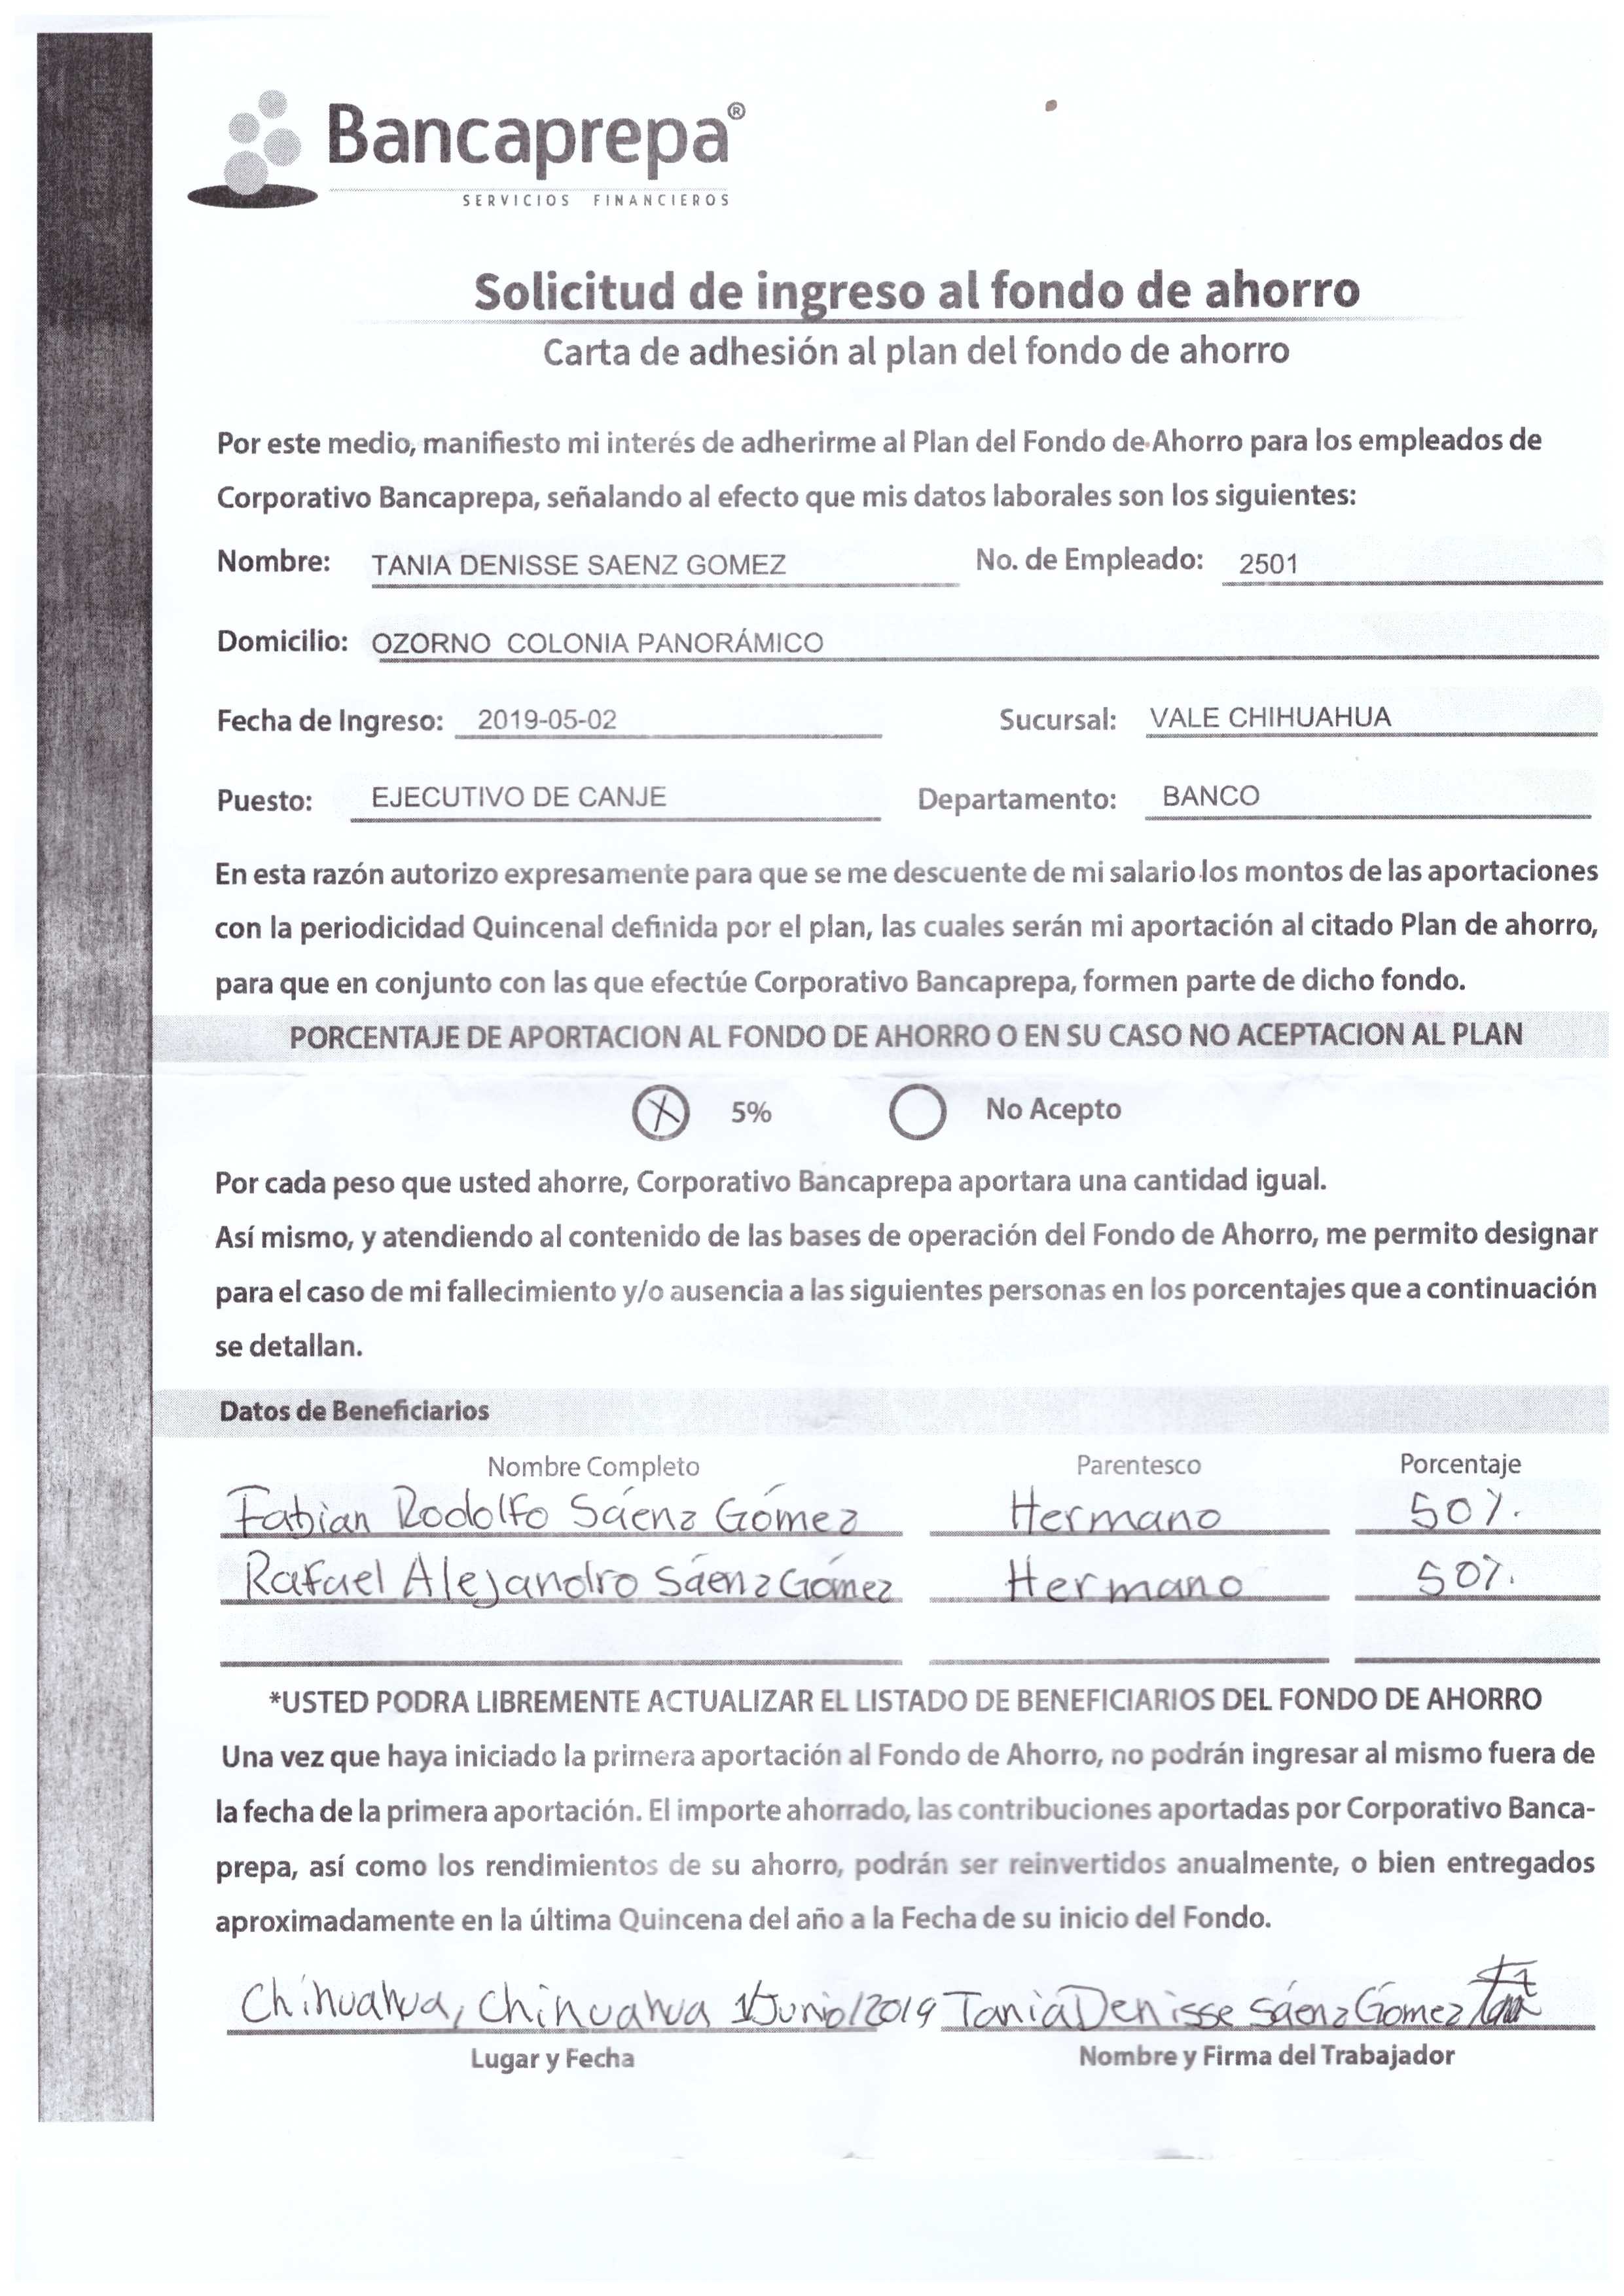 Bancaprepa®
SERVICIOS FINANCIEROS
Solicitud de ingreso al fondo de ahorro
Carta de adhesión al plan del fondo de ahorro
Por este medio, manifiesto mi interés de adherirme al Plan del Fondo de Ahorro para los empleados de
Corporativo Bancaprepa, señalando al efecto que mis datos laborales son los siguientes:
Nombre: TANIA DENISSE SAENZ GOMEZ No. de Empleado: 2501
Domicilio: OZORNO COLONIA PANORÁMICO
Fecha de Ingreso: 2019-05-02 Sucursal: VALE CHIHUAHUA
Puesto: EJECUTIVO DE CANJE Departamento: BANCO
En esta razón autorizo expresamente para que se me descuente de mi salario los montos de las aportaciones
con la periodicidad Quincenal definida por el plan, las cuales serán mi aportación al citado Plan de ahorro,
para que en conjunto con las que efectúe Corporativo Bancaprepa, formen parte de dicho fondo.
PORCENTAJE DE APORTACION AL FONDO DE AHORRO O EN SU CASO NO ACEPTACION AL PLAN
X 5% No Acepto
Por cada peso que usted ahorre, Corporativo Bancaprepa aportara una cantidad igual.
Así mismo, y atendiendo al contenido de las bases de operación del Fondo de Ahorro, me permito designar
para el caso de mi fallecimiento y/o ausencia a las siguientes personas en los porcentajes que a continuación
se detallan.
Datos de Beneficiarios
Nombre Completo Parentesco Porcentaje
Fabian Rodolfo Sáenz Gómez Hermano 50%.
Rafael Alejandro Sáenz Gómez Hermano 50%.
*USTED PODRA LIBREMENTE ACTUALIZAR EL LISTADO DE BENEFICIARIOS DEL FONDO DE AHORRO
Una vez que haya iniciado la primera aportación al Fondo de Ahorro, no podrán ingresar al mismo fuera de
la fecha de la primera aportación. El importe ahorrado, las contribuciones aportadas por Corporativo Banca-
prepa, así como los rendimientos de su ahorro, podrán ser reinvertidos anualmente, o bien entregados
aproximadamente en la última Quincena del año a la Fecha de su inicio del Fondo.
Chihuahua, Chihuahua Junio/2019 Tania Denisse Sáenz Gómez
Lugar y Fecha Nombre y Firma del Trabajador